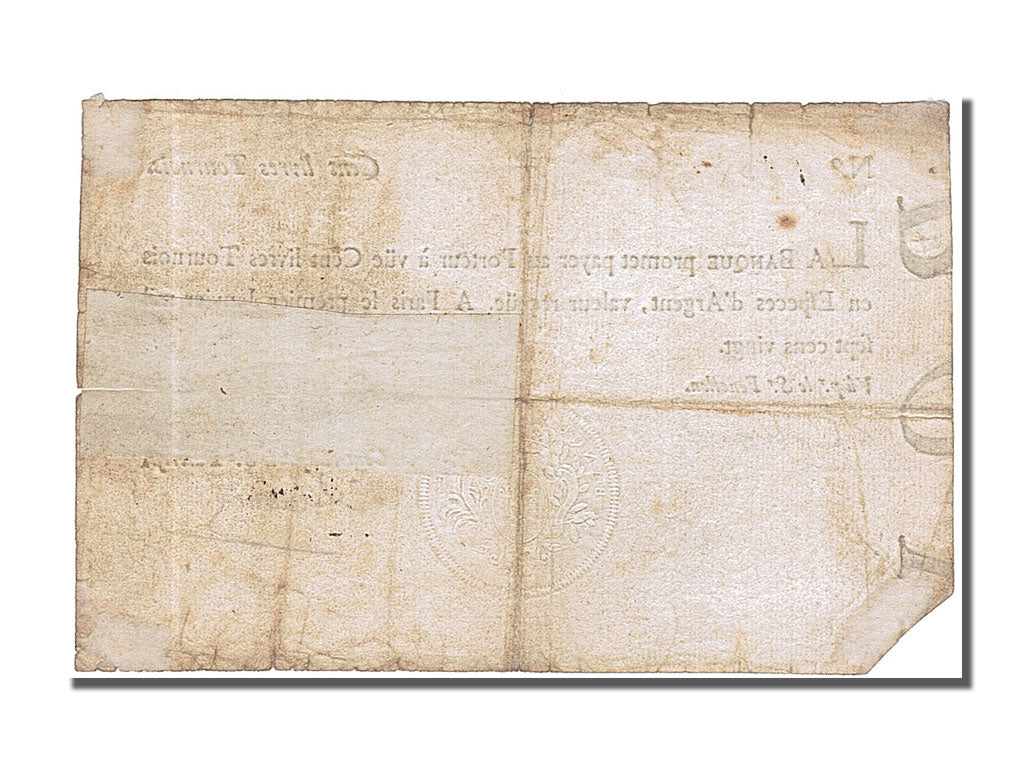 N.º Cent livres Tournois.
LA BANQUE promet payer au Porteur à vüe Cẽt livres Tournois
en Especes d'Argent, valeur reçüe. A Paris le premier
sept cens vingt.
Vû p.r le S.r Fenellon.